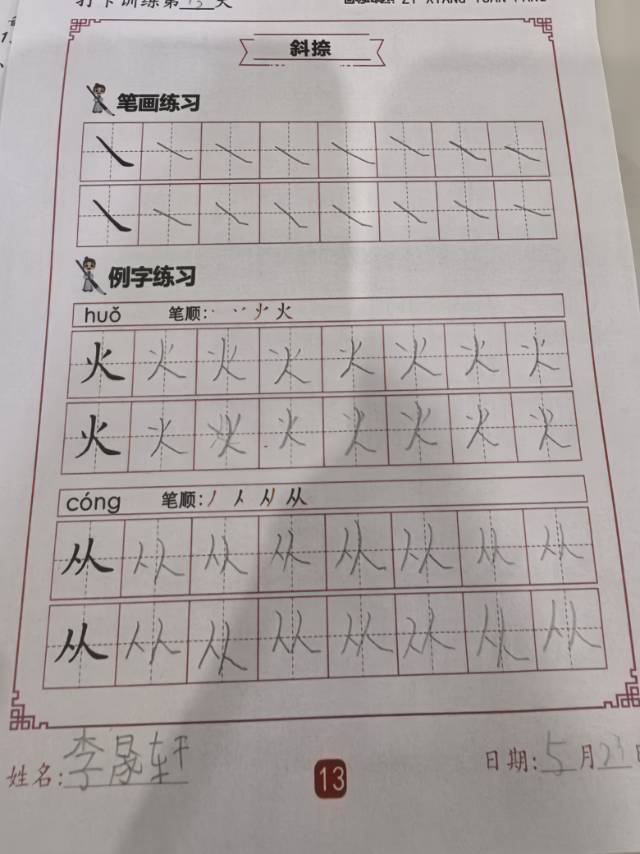 打卡训练第13天
斜捺
笔画练习
例字练习
huǒ 笔顺: 火
火 火 火 火 火 火 火 火
火 火 火 火 火 火 火 火
cóng 笔顺: 从
从 从 从 从 从 从 从 从
从 从 从 从 从 从 从 从
姓名:李晟轩
13
日期:5月23日